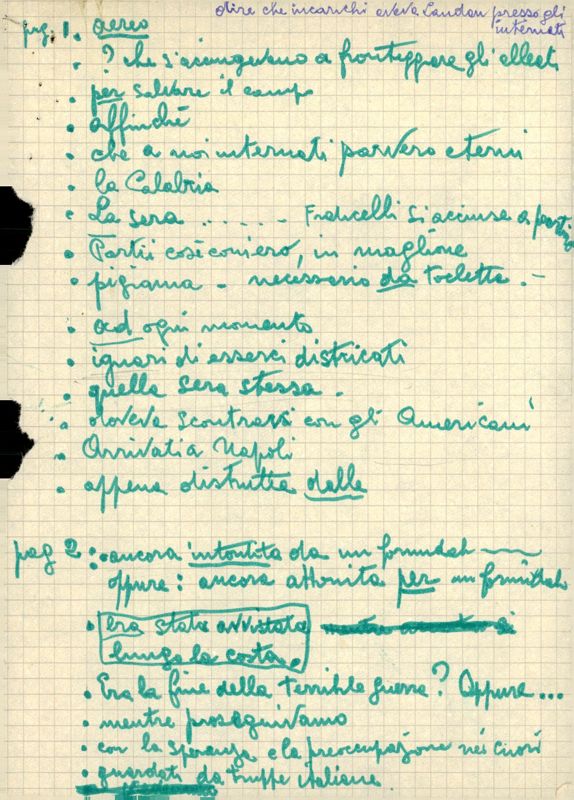 dire che incarichi aveva Landau presso gli
internati
pag. 1. aereo
? che s'accingevano a fronteggiare gli alleati
per salvare il campo
affinché
che a noi internati parvero eterni
la Calabria
La sera ..... Fraticelli si accinse a
Partii così com'ero, in maglione
pigiama - necessario da toeletta. -
ad ogni momento
ignari di esserci districati
quella sera stessa.
doveva scontrarsi con gli Americani
Arrivati a Napoli
appena distrutta dalle
pag 2: ancora intontita da un formidab
oppure: ancora attonita per un formidab
era stata avvistata si
lungo la costa.
Era la fine della terribile guerra? Oppure...
mentre proseguivamo
con la speranza e la preoccupazione nei cuori
guardati da truppe italiane.